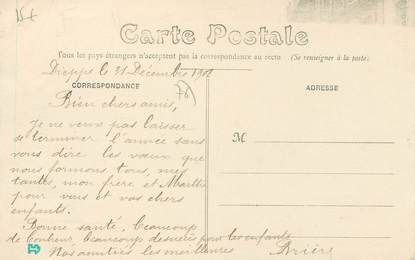 15€
Carte Postale
Tous les pays étrangers n'acceptent pas la correspondance au recto (Se renseigner à la poste)
Dieppe le 31 Décembre
CORRESPONDANCE
76
ADRESSE
Bien chers amis,
Je ne veux pas laisser
se terminer l'année sans
vous dire les vœux que
nous formons tous, mes
tantes, mon frère et Marthe
pour vous et vos chers
enfants.
M
Bonne santé, beaucoup
de bonheur, beaucoup de pour les enfants
Nos amitiés les meilleures